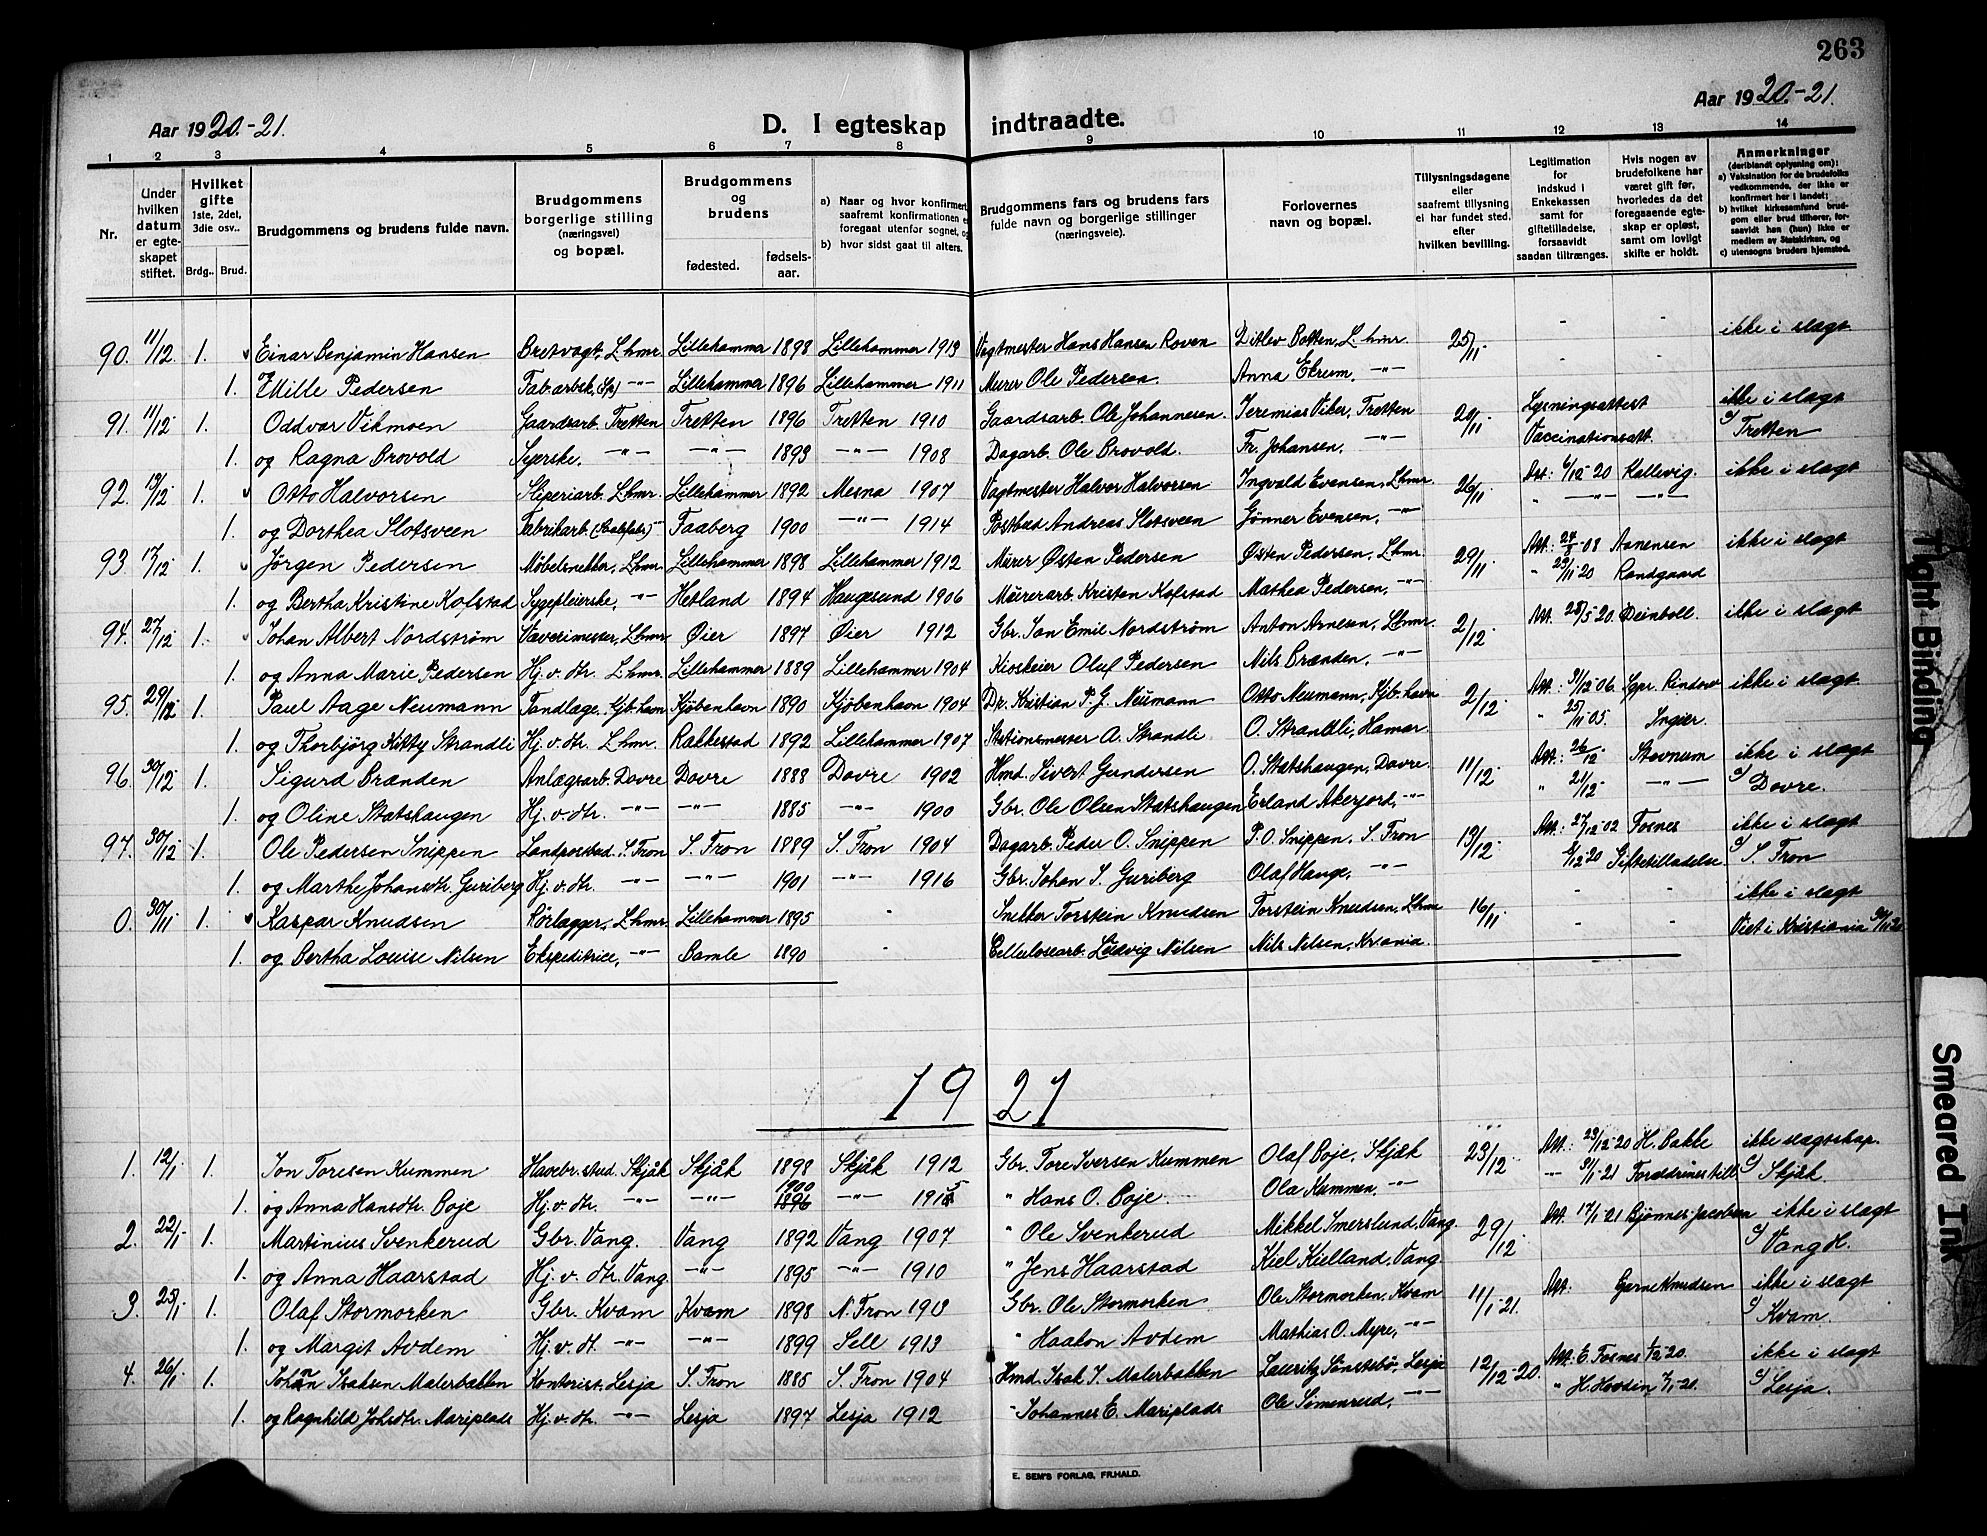 263
Aar 1920.-21.
D. I egteskap indtraadte.
Aar 1920.-21.
1 2 3 4 5 6 7 8 9 10 11 12 13 14
Nr.
Under hvilken datum er egteskapet stiftet.
Hvilket gifte 1ste, 2det, 3die osv.. Brdg.. Brud.
Brudgommens og brudens fulde navn.
Brudgommens borgerlige stilling (næringsvei) og bopæl.
Brudgommens og brudens fødested. fødselsaar.
a) Naar og hvor konfirmert, saafremt konfirmationen er foregaat utenfor sognet, og
b) hvor sidst gaat til alters.
Brudgommens fars og brudens fars fulde navn og borgerlige stillinger (næringsveie).
Forlovernes navn og bopæl.
Tillysningsdagene eller saafremt tillysning ei har fundet sted, efter hvilken bevilling.
Legitimation for indskud i Enkekassen samt for giftetilladelse, forsaavidt saadan tiltrænges.
Hvis nogen av brudefolkene har været gift før, hvorledes da det foregaaende egteskap er opløst, samt om lovligt skifte er holdt.
Anmerkninger (deriblandt oplysning om):
a) Vaksination for de brudefolks vedkommende, der ikke er konfirmert her i landet;
b) hvilket kirkesamfund brudgom eller brud tilhører, forsaavidt han (hun) ikke er medlem av Statskirken, og
c) utensogns bruders hjemsted.
90. 11/12. 1. Einar Benjamin Hansen Bretvagt, L.hmr. Lillehammer 1898 Lillehammer 1913 Vagtmester Hans Hansen Roven Ditlev Botten, L.hmr. 25/11. - - ikke i slagt
1. Mille Pedersen Fabarbsk. -"- Lillehammer 1896 Lillehammer 1911 Murer Ole Pedersen. Anna Ekrum, -"- - -
91. 11/12 1. Oddvar Vikmoen Gaardsarb. Tretten Tretten 1896 Tretten 1910 Gaardsarb. Ole Johannesen. Jeremias Viker, Tretten 20/11 Lysningsattest ikke i slagt
1. og Ragna Brovold Syerske, -"- -"- 1893 -"- 1908 Dagarb. Ole Brovold. Fr. Johansen, -"- Vaccinationsatt. c/ Tretten
92. 19/12 1. Otto Halvorsen Sliperiarb. L.hmr. Lillehammer 1892 Mesna 1907 Vagtmester Halvor Halvorsen Ingvald Evensen, L.hmr. 26/11 Att: 6/12-20 Kallevig ikke i slagt
1. og Dorthea Slotsveen Fabrikarb. -"- Faaberg 1900 -"- 1914 Postbud Andreas Slotsveen Gønner Evensen, -"- " -"- -"-
93. 17/12 1. Jørgen Pedersen Møbelsnekker, L.hmr. Lillehammer 1898 Lillehammer 1912 Murer Østen Pedersen Østen Pedersen, L.hmr. 29/11 Att: 24/8-08 Aanensen ikke i slagt
1. og Bertha Kristine Kofstad Sygepleierske, -"- Hetland 1894 Haugesund 1906 Murerarb. Kristen Kofstad Mathea Pedersen, -"- " 23/11-20 Randgaard
94. 27/12 1. Johan Albert Nordstrøm Væverimester, L.hmr. Øier 1897 Øier 1912 Gbr. Jon Emil Nordstrøm Anton Arnesen, L.hmr. 2/12 Att. 28/5-20. Deinboll. ikke i slagt
1. og Anna Marie Pedersen Hj.v.dtr. L.hmr. Lillehammer 1889 Lillehammer 1904 Kioskeier Oluf Pedersen Nils Brænden, -"-
95. 29/12 1. Paul Aage Neumann Tandlæge, Kjb.havn Kjøbenhavn 1890 Kjöbenhavn 1904 Dr. Kristian P. G. Neumann Otto Neumann, Kjb.havn 2/12 Att: 31/12-06. Sgpr. Rindow ikke i slagt
1. og Thorbjörg Kitty Strandli Hj.v.dtr. L.hmr. Rakkestad 1892 Lillehammer 1907 Stationsmester A. Strandli O. Strandli, Hamar. " 25/11-05. Ingier.
96. 30/12 1. Sigurd Brænden Anlægsarb. Dovre Dovre 1888 Dovre 1902 Hmd. Sivert Gundersen O. Statshaugen, Dovre. 11/12 Att: 26/12 Stovnum ikke i slagt
1. og Oline Statshaugen Hj.v.dtr. -"- -"- 1885 -"- 1900 Gbr. Ole Olsen Statshaugen Erland Akerjord, -"- " 21/12 -"- c/ Dovre.
97. 30/12 1. Ole Pedersen Snippen Landpostbud. S. Fron S. Fron 1889 S. Fron 1904 Dagarb. Peder O. Snippen P.O. Snippen, S. Fron 19/12. Att: 27/12-02 Fosnes ikke i slagt
1. og Marthe Johansdtr. Guriberg Hj.v.dtr. -"- -"- 1901 -"- 1916 Gbr. Johan S. Guriberg Olaf Hauge, -"- 8/12-20 Giftetilladelse c/ S. Fron
0. 30/11 1. Kaspar Knudsen Rörlægger, L.hmr. Lillehammer 1895 - Snekker Torstein Knudsen Torstein Knudsen, L.hmr 16/11. - - ikke i slagt
1. og Bertha Louise Nilsen Ekspeditrice, -"- Bamle 1890 - Cellulosearb. Ludvig Nilsen Nils Nilsen, Kr.ania. - - Viet i Kristiania 30/11 20
1921
1. 12/1 1. Jon Toresen Kummen Havebr.stud. Skjåk Skjåk 1898 Skjåk 1912 Gbr. Tore Iversen Kummen Olaf Boje, Skjåk 23/12. Att: 23/12-20 H. Bakke ikke slagtskap.
1. og Anna Hansdtr. Boje Hj.v.dtr. -"- -"- 1900 1896 -"- 1915 " Hans O. Boje. Ola Kummen, -"- -"- 31/1-21 c/ Skjåk.
2. 22/1 1. Martinius Svenkerud Gbr. Vang. Vang 1892 Vang 1907 " Ole Svenkerud Mikkel Smerslund, Vang. 29/12. Att. 17/1-21 Bjønnes-Jacobsen ikke i slagt
1. og Anna Haarstad Hj.v.dtr. Vang. -"- 1895 -"- 1910 " Jens Haarstad Kiel Kielland, Vang. c/ Vang H.
3. 25/1 1. Olaf Stormorken Gbr. Kvam Kvam 1898 N. Fron 1913 Gbr. Ole Stormorken Ole Stormorken, Kvam 11/1-21. Att: Gerne Knudsen ikke i slagt
1. og Margit Avdem Hj.v.dt. -"- -"- 1899 Sell 1913 " Haakon Avdem Mathias O. Myre, -"- c/ Kvam.
4. 26/1 1. Johan Isaksen Malerbakken Kontorist. Lesja S. Fron 1885 S. Fron 1904 Hmd. Isak I. Malerbakken Lauritz Sönstebø, Lesja 12/12-20. Att. E. Fosnes 1/12-20. ikke i slagt
1. og Ragnhild Johsdtr. Mariplads Hj.v.dtr. -"- Lesja 1897 Lesja 1912 " Johannes E. Mariplads Ole Sömenrud, -"- " H. Hovdin 7/1-20. c/ Lesja.
E. SEM'S FORLAG, FR.HALD.
Tight Binding
Smeared Ink